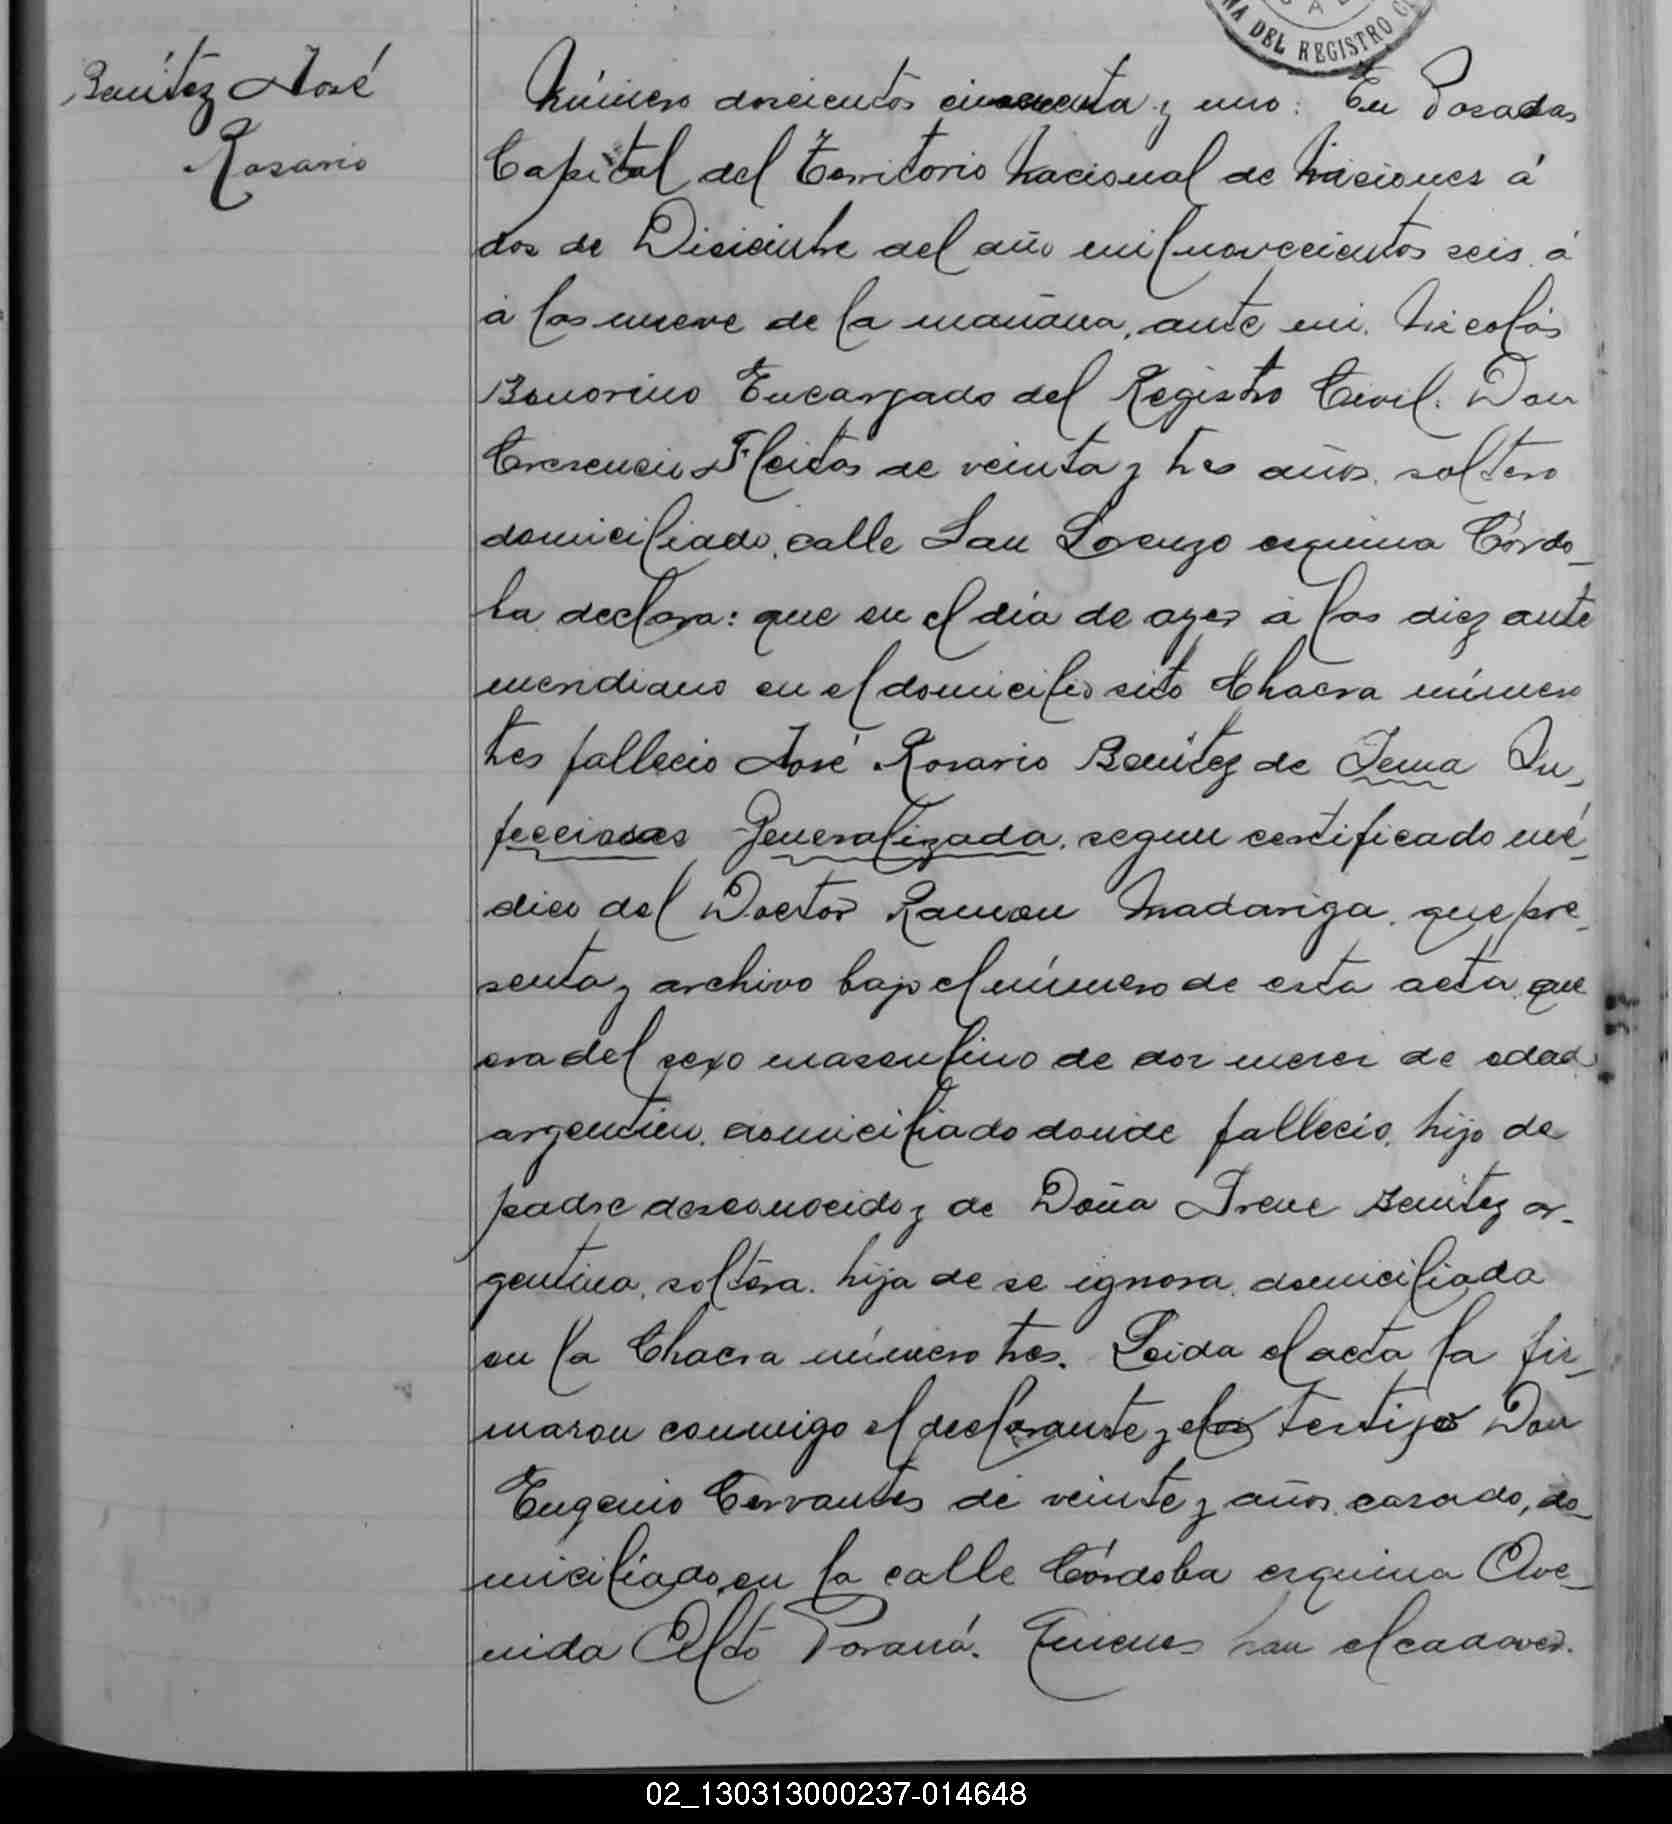 Benítez José
Rosario
NA DEL REGISTRO C
Número doscientos cincuenta y uno: En Posadas
Capital del Territorio Nacional de Misiones á
dos de Diciembre del año mil novecientos seis á
á las nueve de la mañana, ante mi, Nicolás
Bonorino Encargado del Registro Civil. Don
Crescencio Fleitas de veinta y tres años, soltero
domiciliado, calle San Lorenzo esquina Córdo_
ba declara: que en el día de ayer á las diez ante
meridiano en el domicilio sito Chacra número
tres fallecio José Rosario Benitez de In_
fecciosas Generalizada, segun certificado mé_
dico del Doctor Ramon Madariga, que pre_
senta y archivo bajo el número de esta acta, que
era del sexo masculino de dos meses de edad
argentino, domiciliado donde fallecio, hijo de
padre desconocido y de Doña Irene Benitez ar_
gentina, soltera, hija de se ignora, domiciliada
en la Chacra número tres. Leida el acta la fir_
maron conmigo el declarante y el testigo Don
Eugenio Cervantes de veinte y años, casado, do_
miciliado, en la calle Córdoba esquina Ave_
nida Alto Paraná. Quienes han el cadaver.
02_130313000237-014648